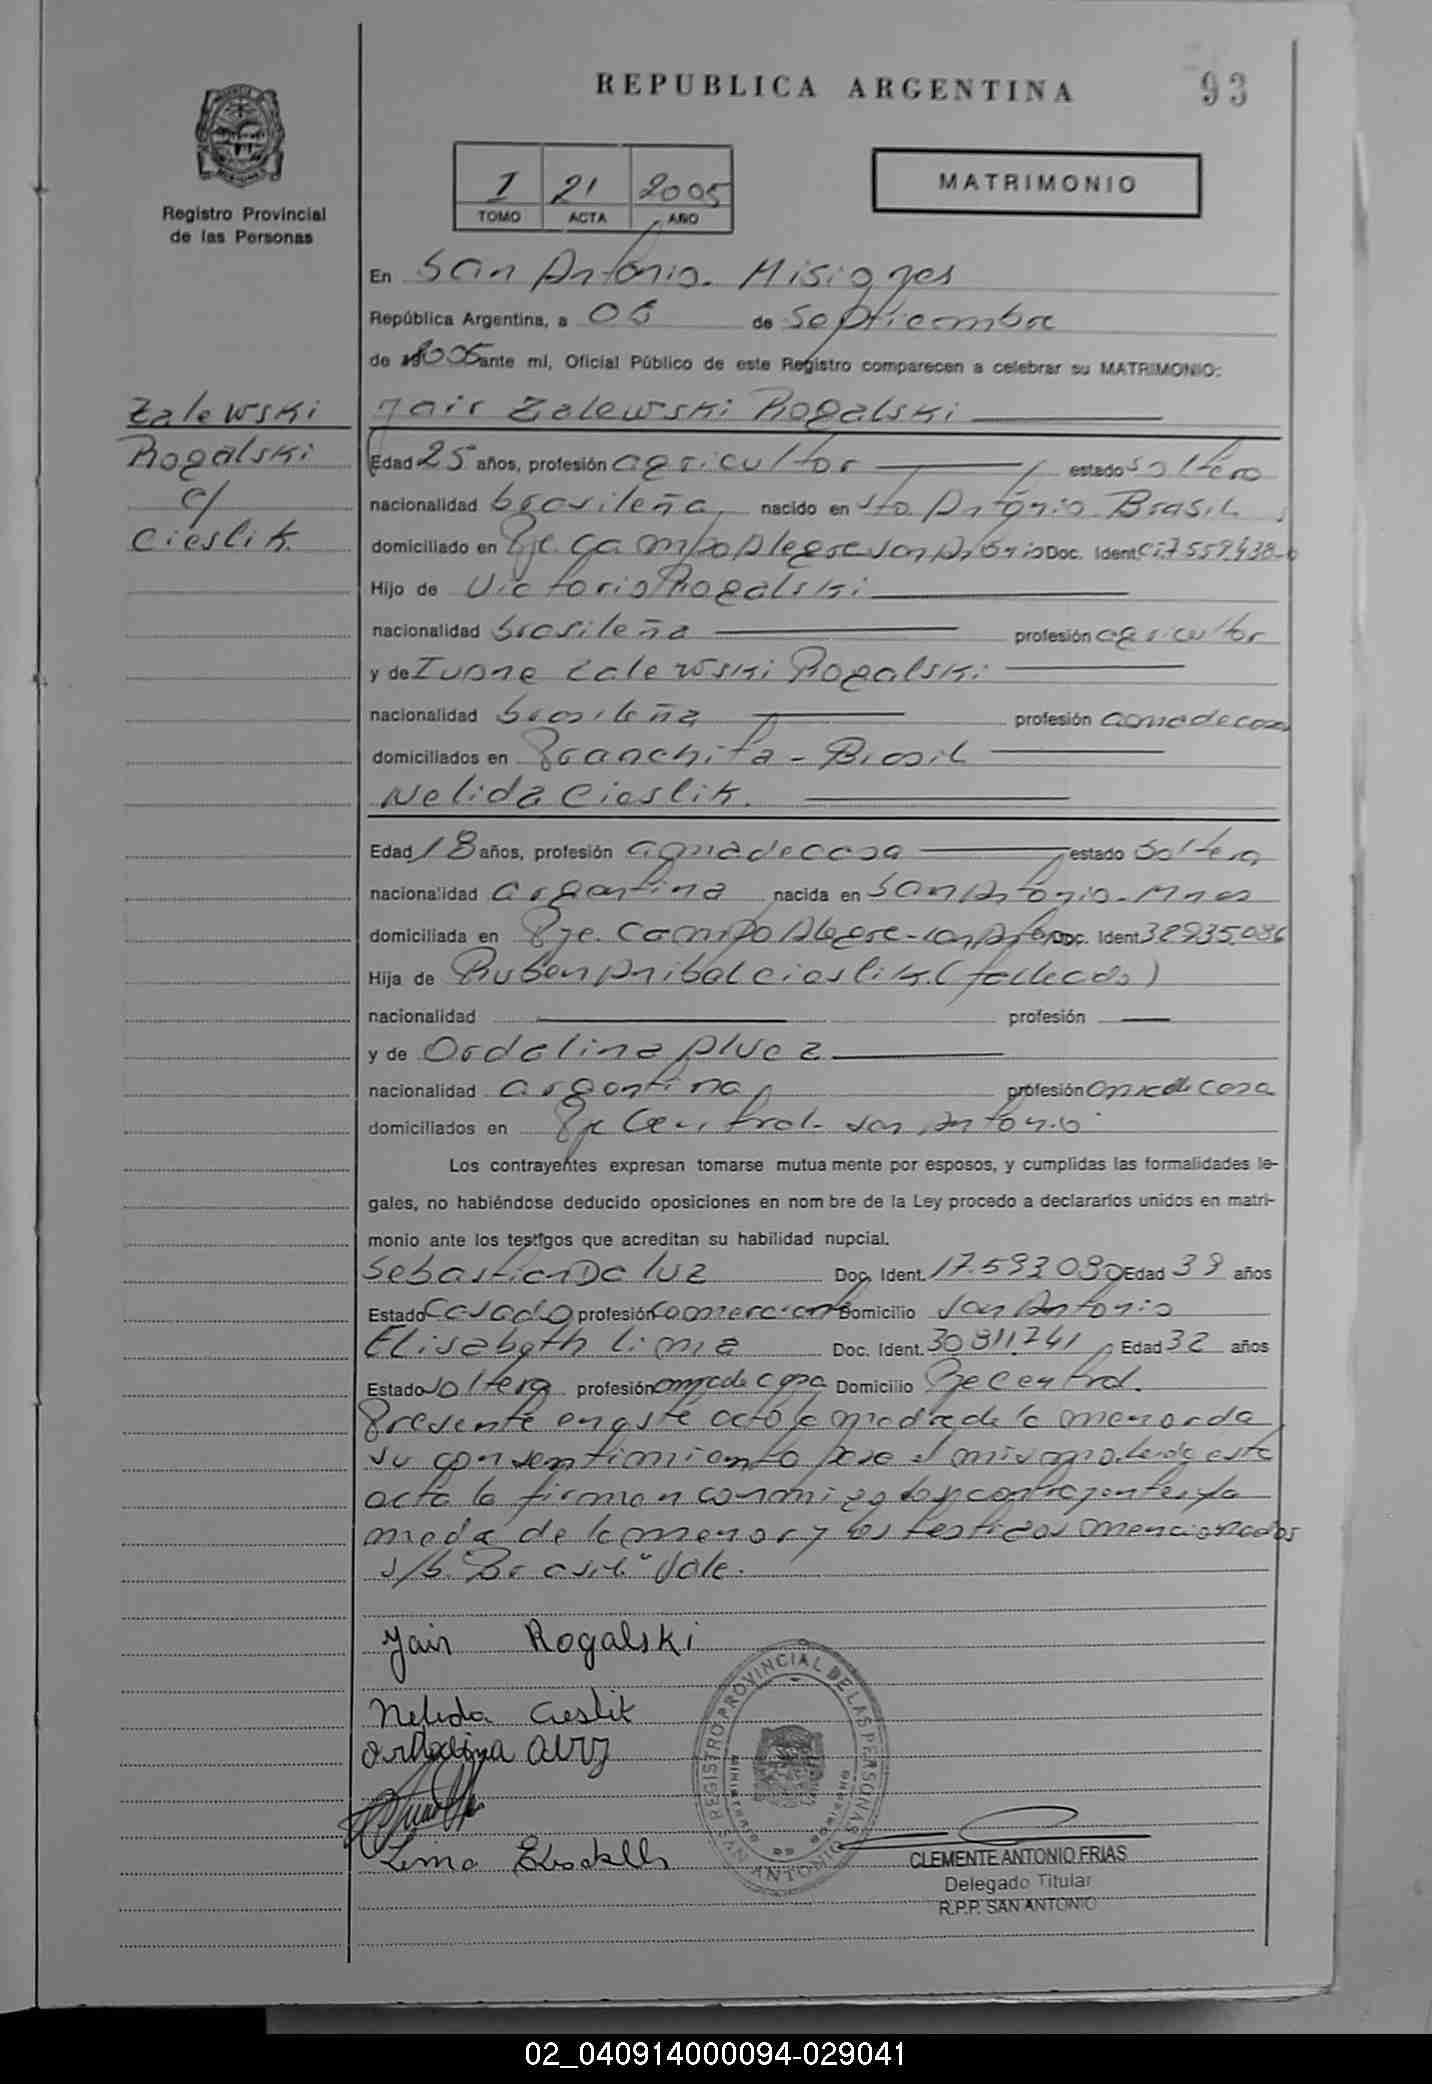 REPUBLICA ARGENTINA
93
Registro Provincial
de las Personas
I 21 2005
TOMO ACTA AÑO
MATRIMONIO
En San Antonio - Misiones
República Argentina, a 06 de Septiembre
de 2005 ante mí, Oficial Público de este Registro comparecen a celebrar su MATRIMONIO:
Zalewski
Rogalski
c/
Cieslik
Jair Zalewski Rogalski
Edad 25 años, profesión agricultor estado soltero
nacionalidad brasileña nacido en Sto. Antonio Brasil
domiciliado en Pje. Campo Alegre San Antonio Doc. Ident. CI 7559.438-0
Hijo de Victorio Rogalski
nacionalidad brasileña profesión agricultor
y de Ivone Zalewski Rogalski
nacionalidad brasileña profesión ama de casa
domiciliados en Pranchita - Brasil
Nelida Cieslik
Edad 18 años, profesión ama de casa estado soltera
nacionalidad argentina nacida en San Antonio - Mnes
domiciliada en Pje. Campo Alegre - San Antonio Doc. Ident. 32935.086
Hija de Ruben Anibal Cieslik (fallecido)
nacionalidad profesión
y de Ordalina Alvez
nacionalidad argentina profesión ama de casa
domiciliados en Pje Central - San Antonio
Los contrayentes expresan tomarse mutua mente por esposos, y cumplidas las formalidades le-
gales, no habiéndose deducido oposiciones en nom bre de la Ley procedo a declararlos unidos en matri-
monio ante los testigos que acreditan su habilidad nupcial.
Sebastian Da luz Doc. Ident. 17.593.090 Edad 39 años
Estado Casado profesión comerciante Domicilio San Antonio
Elisabeth Lima Doc. Ident. 30811.741 Edad 32 años
Estado soltera profesión ama de casa Domicilio Pje Central.
Presente en este acto la madre de la menor da
su consentimiento para el mismo. leida esta
acta la firman conmigo los contrayentes, la
madre de la menor y los testigos mencionados
s/b. "Brasil" Vale.
Jair Rogalski
Nelida Cieslik
Lima Elisabeth
REGISTRO PROVINCIAL DE LAS PERSONAS
SAN ANTONIO
CLEMENTE ANTONIO FRIAS
Delegado Titular
R.P.P. SAN ANTONIO
02_040914000094-029041